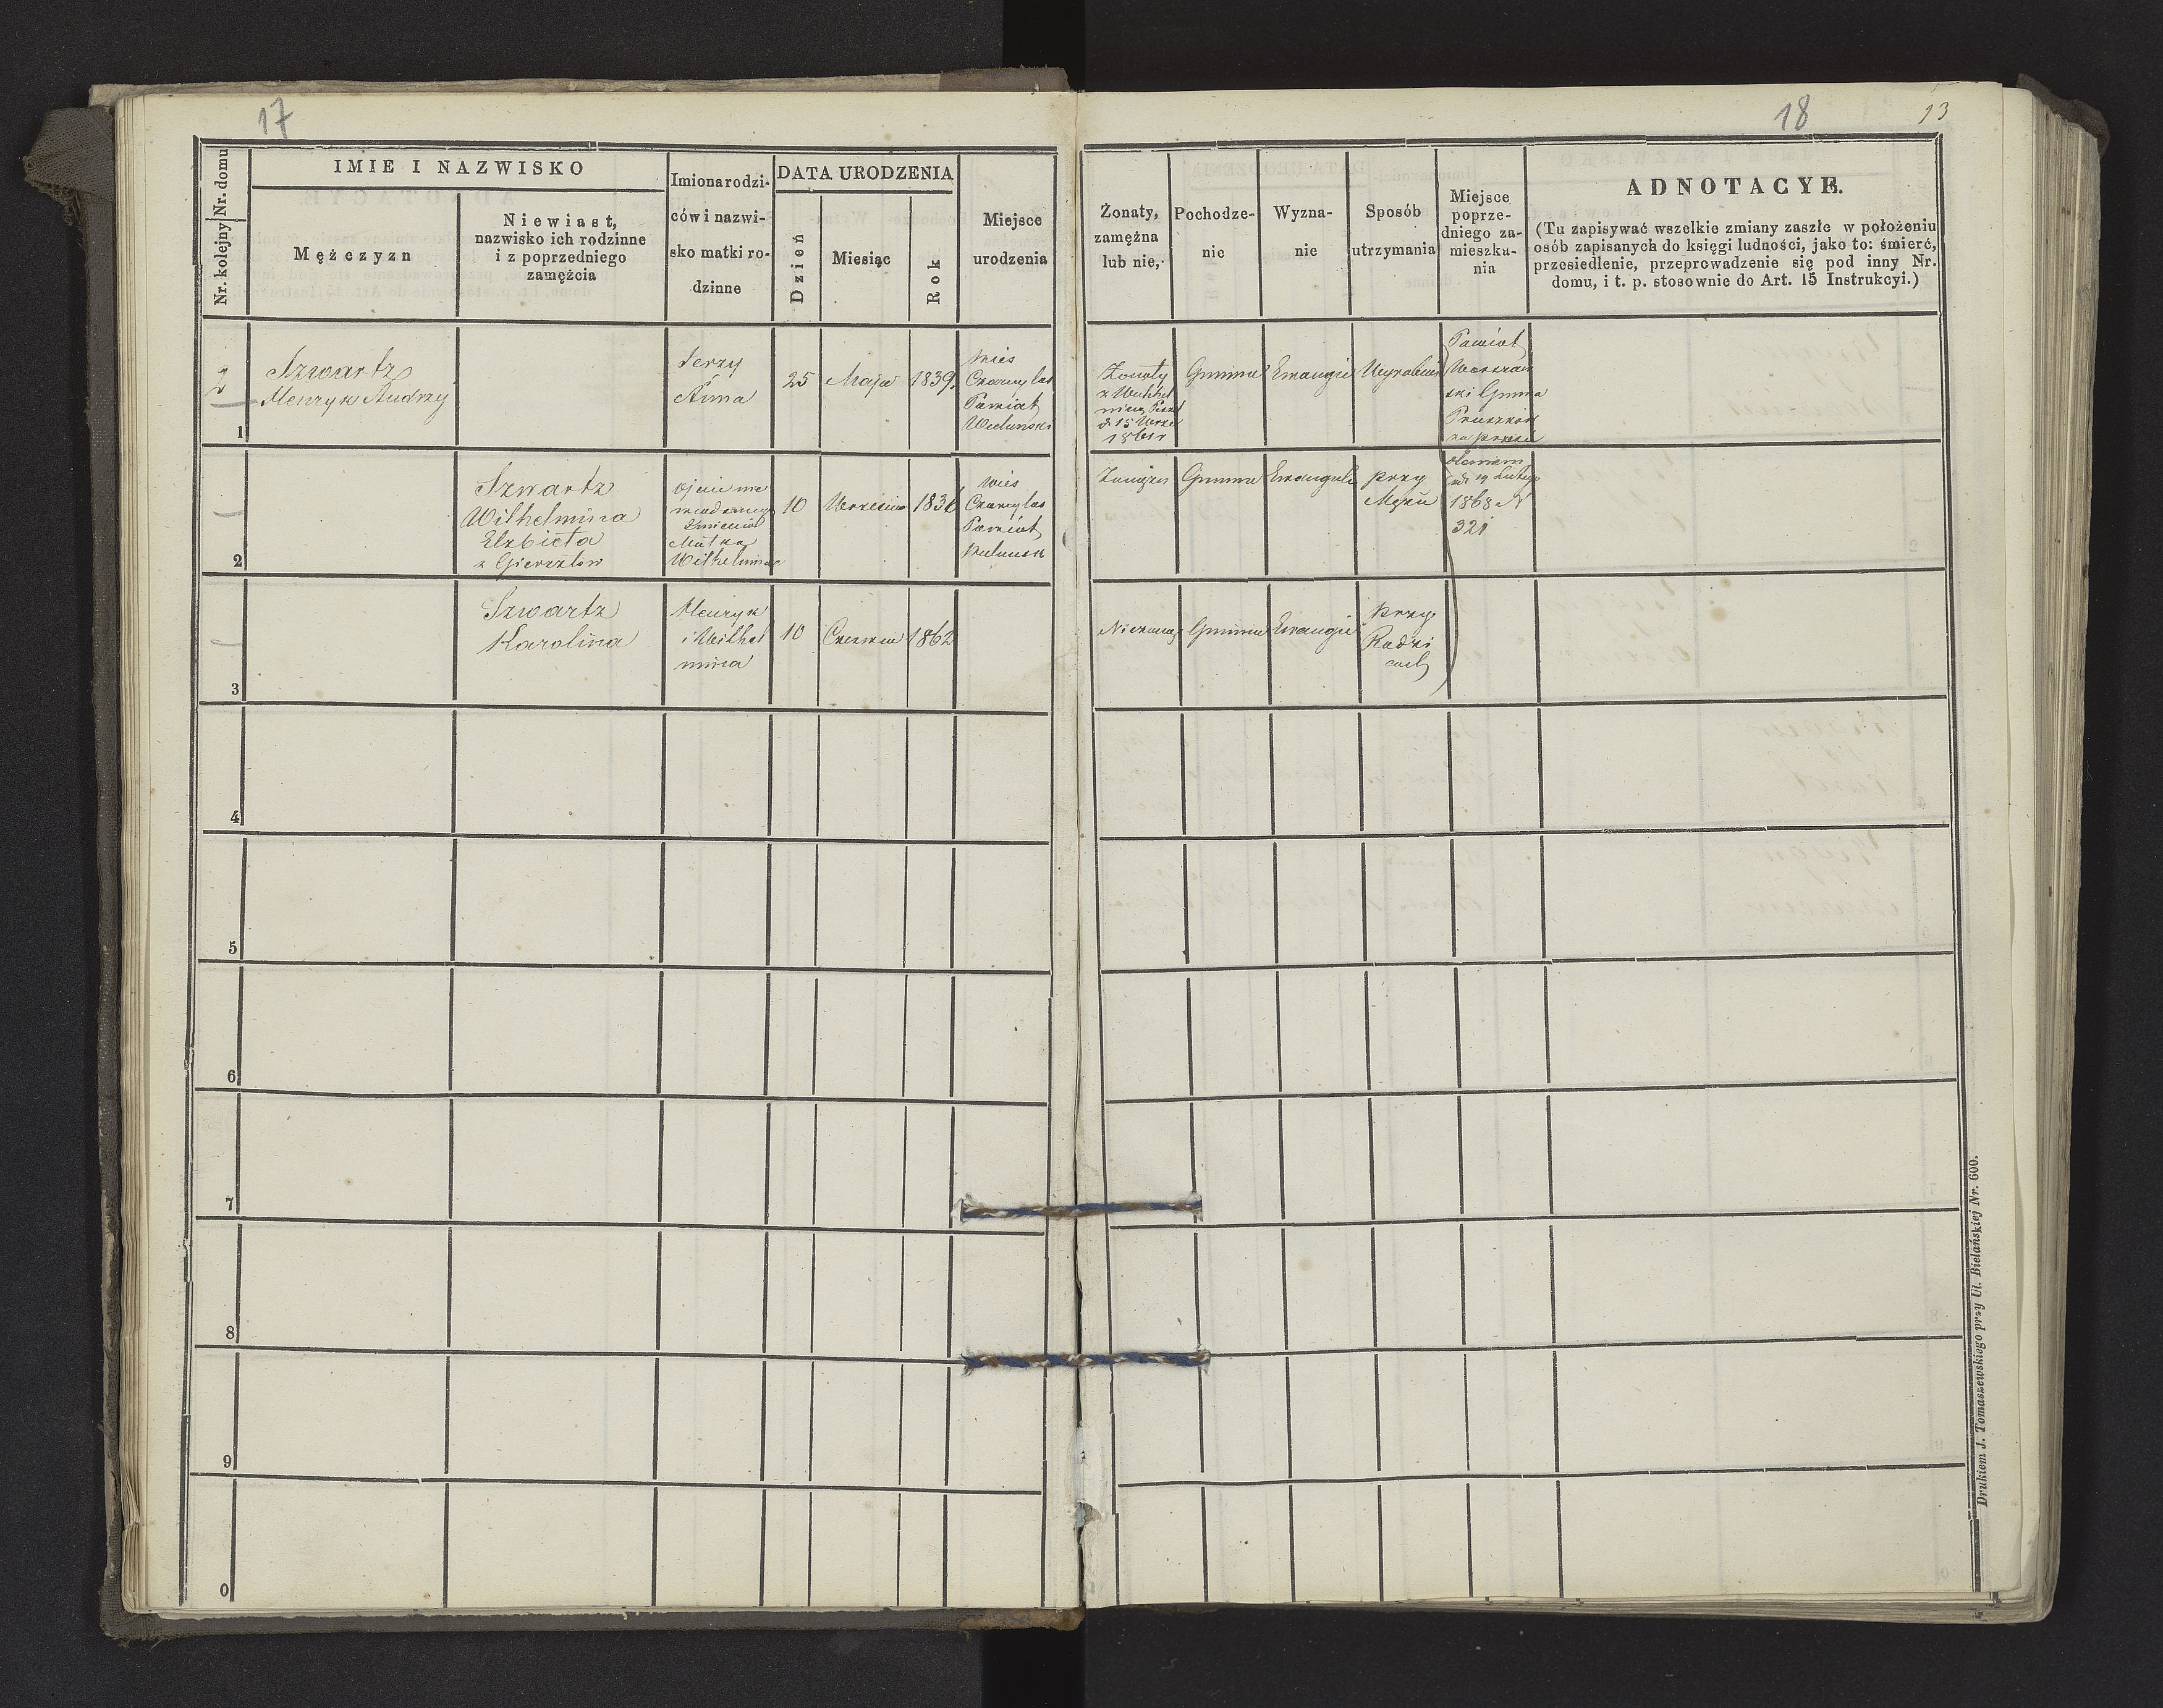 17
IMIE I NAZWISKO
Nr. kolejny Nr. domu
Mężczyzn
Niewiast,
nazwisko ich rodzinne
i z poprzedniego
zamężcia
Imiona rodzi-
ców i nazwi-
sko matki ro-
dzinne
DATA URODZENIA
Dzień
Miesiąc
Rok
Miejsce
urodzenia
2
1
Szwartz
Henryk Andrzy
Jerzy
Anna
25
Maja
1839
wieś
Czarny las
Powiat
Wieluński
2
Szwartz
Wilhelmina
Elzbieta
z
Ojciec nie
wiadomy
Matka
Wilhelmina
10
1836
wieś
Czarny las
Powiat
3
Szwartz
Karolina
Henryk
i Wilhel
mina
10
Czerwca
1862
4
5
6
7
8
9
0
18
13
Żonaty,
zamężna
lub nie,
Pochodze-
nie
Wyzna-
nie
Sposób
utrzymania
Miejsce
poprze-
dniego za-
mieszka-
nia
ADNOTACYE.
(Tu zapisywać wszelkie zmiany zaszłe w położeniu
osób zapisanych do księgi ludności, jako to: śmierć,
przesiedlenie, przeprowadzenie się pod inny Nr.
domu, i t. p. stosownie do Art. 15 Instrukcyi.)
Żonaty
z Wilhel
miną
d 15
1861 r
Gminne
Ewangie
Wyrobnik
Powiat
Warszaw
ski Gmina
Pruszków
za przesie
dleniem
d 19 Lutego
1868 N
321
Gminne
Ewangieli
przy
Mężu
Gminne
Ewangie
przy
Rodzi
cach
Drukiem J. Tomaszewskiego przy Ul. Bielańskiej Nr. 600.